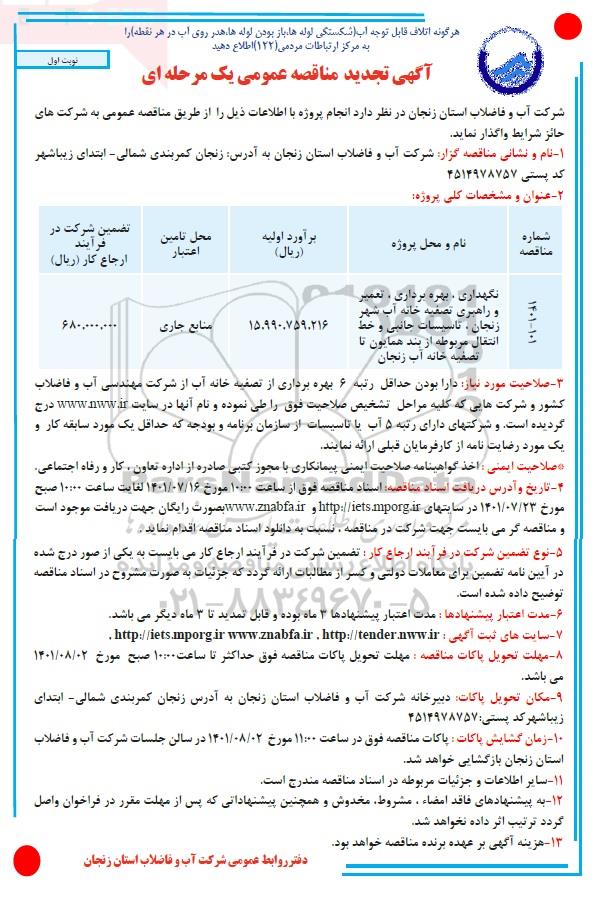 هرگونه اتلاف قابل توجه آب(شکستگی لوله ها،باز بودن لوله ها،هدر روی آب در هر نقطه)را
به مرکز ارتباطات مردمی(۱۲۲)اطلاع دهید
نوبت اول
آگهی تجدید مناقصه عمومی یک مرحله ای
شرکت آب و فاضلاب استان زنجان در نظر دارد انجام پروژه با اطلاعات ذیل را از طریق مناقصه عمومی به شرکت های
حائز شرایط واگذار نماید.
۱-نام و نشانی مناقصه گزار: شرکت آب و فاضلاب استان زنجان به آدرس: زنجان کمربندی شمالی- ابتدای زیباشهر
کد پستی ۴۵۱۴۹۷۸۷۵۷
۲-عنوان و مشخصات کلی پروژه:
شماره مناقصه
نام و محل پروژه
برآورد اولیه (ریال)
محل تامین اعتبار
تضمین شرکت در فرآیند ارجاع کار (ریال)
۱۴۰۱-۱۰۱
نگهداری ، بهره برداری ، تعمیر
و راهبری تصفیه خانه آب شهر
زنجان ، تاسیسات جانبی و خط
انتقال مربوطه از بند همایون تا
تصفیه خانه آب زنجان
۱۵.۹۹۰.۷۵۹.۲۱۶
منابع جاری
۶۸۰.۰۰۰.۰۰۰
۳-صلاحیت مورد نیاز: دارا بودن حداقل رتبه ۶ بهره برداری از تصفیه خانه آب از شرکت مهندسی آب و فاضلاب
کشور و شرکت هایی که کلیه مراحل تشخیص صلاحیت فوق را طی نموده و نام آنها در سایت www.nww.ir درج
گردیده است. و شرکتهای دارای رتبه ۵ آب یا تاسیسات از سازمان برنامه و بودجه که حداقل یک مورد سابقه کار و
یک مورد رضایت نامه از کارفرمایان قبلی ارائه نمایند.
*صلاحیت ایمنی : اخذ گواهینامه صلاحیت ایمنی پیمانکاری با مجوز کتبی صادره از اداره تعاون ، کار و رفاه اجتماعی.
۴-تاریخ وآدرس دریافت اسناد مناقصه: اسناد مناقصه فوق از ساعت ۱۰:۰۰ مورخ ۱۴۰۱/۰۷/۱۶ لغایت ساعت ۱۰:۰۰ صبح
مورخ ۱۴۰۱/۰۷/۲۳ در سایتهای http://iets.mporg.ir و www.znabfa.ir بصورت رایگان جهت دریافت موجود است
و مناقصه گر می بایست جهت شرکت در مناقصه ، نسبت به دانلود اسناد مناقصه اقدام نماید.
۵-نوع تضمین شرکت در فرآیند ارجاع کار : تضمین شرکت در فرآیند ارجاع کار می بایست به یکی از صور درج شده
در آیین نامه تضمین برای معاملات دولتی و کسر از مطالبات ارائه گردد که جزئیات به صورت مشروح در اسناد مناقصه
توضیح داده شده است.
۶-مدت اعتبار پیشنهادها : مدت اعتبار پیشنهادها ۳ ماه بوده و قابل تمدید تا ۳ ماه دیگر می باشد.
۷-سایت های ثبت آگهی : http://iets.mporg.ir www.znabfa.ir , http://tender.nww.ir ,
۸-مهلت تحویل پاکات مناقصه : مهلت تحویل پاکات مناقصه فوق حداکثر تا ساعت۱۰:۰۰ صبح مورخ ۱۴۰۱/۰۸/۰۲
می باشد.
۹-مکان تحویل پاکات: دبیرخانه شرکت آب و فاضلاب استان زنجان به آدرس زنجان کمربندی شمالی- ابتدای
زیباشهرکد پستی:۴۵۱۴۹۷۸۷۵۷
۱۰-زمان گشایش پاکات : پاکات مناقصه فوق در ساعت ۱۱:۰۰ مورخ ۱۴۰۱/۰۸/۰۲ در سالن جلسات شرکت آب و فاضلاب
استان زنجان بازگشایی خواهد شد.
۱۱-سایر اطلاعات و جزئیات مربوطه در اسناد مناقصه مندرج است.
۱۲-به پیشنهادهای فاقد امضاء ، مشروط، مخدوش و همچنین پیشنهاداتی که پس از مهلت مقرر در فراخوان واصل
گردد ترتیب اثر داده نخواهد شد.
۱۳-هزینه آگهی بر عهده برنده مناقصه خواهد بود.
دفترروابط عمومی شرکت آب و فاضلاب استان زنجان
۰۲۱-۸۸۳۴۹۶۷۰-۵